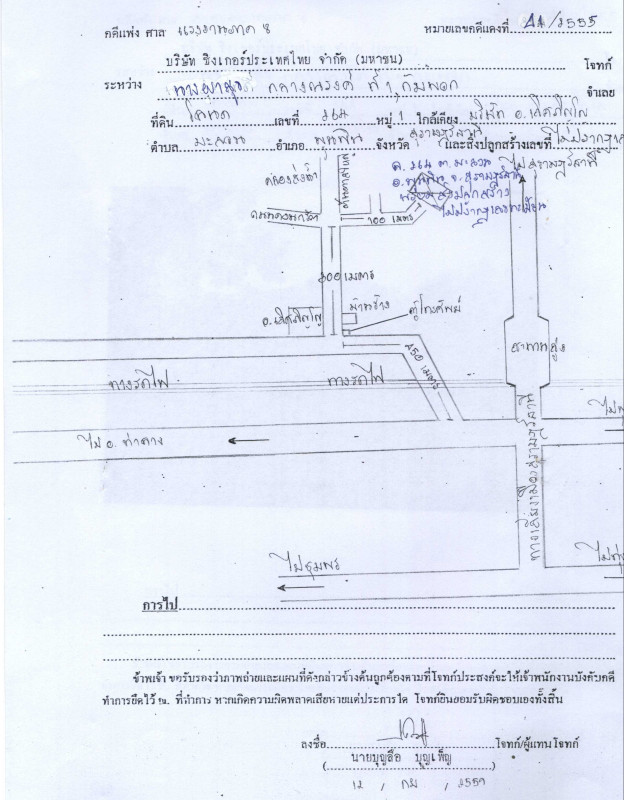 คดีแพ่ง ศาล แรงงานภาค 8 หมายเลขคดีแดงที่ /2555
บริษัท ซิงเกอร์ประเทศไทย จำกัด (มหาชน) โจทก์
ระหว่าง
จำเลย
ที่ดิน โฉนด เลขที่ หมู่ 1 ใกล้เคียง บริษัท อ.เลิศภิญโญ
ตำบล มะลวน อำเภอ พุนพิน จังหวัด สุราษฎร์ธานี และสิ่งปลูกสร้างเลขที่ ไม่ปรากฏ
ต. มะลวน
อ.พุนพิน จ.สุราษฎร์ธานี
พร้อมสิ่งปลูกสร้าง
ไม่ปรากฏเลขทะเบียน
ไปสุราษฎร์ธานี
คลองส่งน้ำ
100 เมตร
800 เมตร
อ.เลิศภิญโญ
บ้านร้าง
ตู้โทรศัพท์
450 เมตร
สะพานสูง
ทางรถไฟ
ทางรถไฟ
ไป อ. ท่าฉาง
ทางเลี่ยงเมืองสุราษฎร์ธานี
ไปชุมพร
ไปทุ่ง
การไป
ข้าพเจ้า ขอรับรองว่าภาพถ่ายและแผนที่ดังกล่าวข้างต้นถูกต้องตามที่โจทก์ประสงค์จะให้เจ้าพนักงานบังคับคดี
ทำการยึดไว้ ณ. ที่ทำการ หากเกิดความผิดพลาดเสียหายแต่ประการใด โจทก์ยินยอมรับผิดชอบเองทั้งสิ้น
ลงชื่อ โจทก์/ผู้แทนโจทก์
( นายบุญลือ บุญเพ็ญ )
12 / กพ / 2559